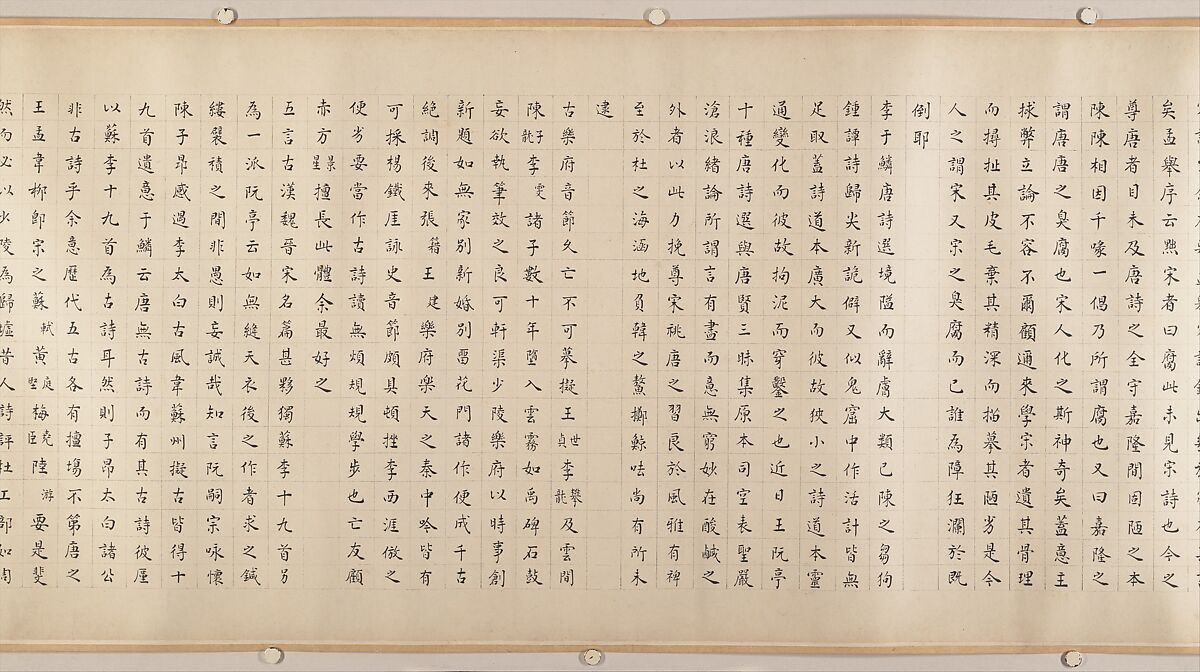 矣孟舉序云黜宋者曰腐此未見宗詩也今之
尊唐者目未及唐詩之全守嘉隆間固陋之本
陳陳相因千喙一倡乃所謂腐也又曰嘉隆之
謂唐唐之臭腐也宋人化之斯神奇矣蓋意主
捄弊立論不容不爾顧通來學宗者遺其骨理
而撏扯其皮毛棄其精深而描摹其陋劣是今
人之謂宋又宗之臭腐而已誰為障狂瀾於既
倒耶
李于鱗唐詩選境隘而辭膚大類已陳之芻狗
鍾譚詩歸尖新詭僻又似鬼窟中作活計皆無
足取蓋詩道本廣大而彼故狹小之詩道本靈
通變化而彼故拘泥而穿鑿之也近日王阮亭
十種唐詩選與唐賢三昧集原本司空表聖嚴
滄浪緒論所謂言有盡而意無窮妙在酸鹹之
外者以此力挽尊宋祧唐之習良於風雅有裨
至於杜之海涵地負韓之鰲擲鯨呿尚有所未
逮
古樂府音節久亡不可摹擬王世貞李攀龍及雲間
陳子龍李雯諸子數十年墮入雲霧如禹碑石鼓
妄欲執筆效之良可軒渠少陵樂府以時事創
新題如無家別新婚別留花門諸作便成千古
絕調後來張籍王建樂府樂天之秦中吟皆有
可採楊鐵厓詠史音節頗具頓挫李西涯倣之
便劣要當作古詩讀無煩規規學步也亡友顧
赤方景星擅長此體余最好之
五言古漢魏晉宋名篇甚夥獨蘇李十九首另
為一派阮亭云如無縫天衣後之作者求之鍼
縷襞積之間非愚則妄誠哉知言阮嗣宗咏懷
陳子昂感遇李太白古風韋蘇州擬古皆得十
九首遺意于鱗云唐無古詩而有其古詩彼厪
以蘇李十九首為古詩耳然則子昂太白諸公
非古詩乎余意歷代五古各有擅場不第唐之
王孟韋柳卽宗之蘇軾黃庭堅梅堯臣陸游要是斐
然而必以少陵為歸墟昔人詩評杜工部如周